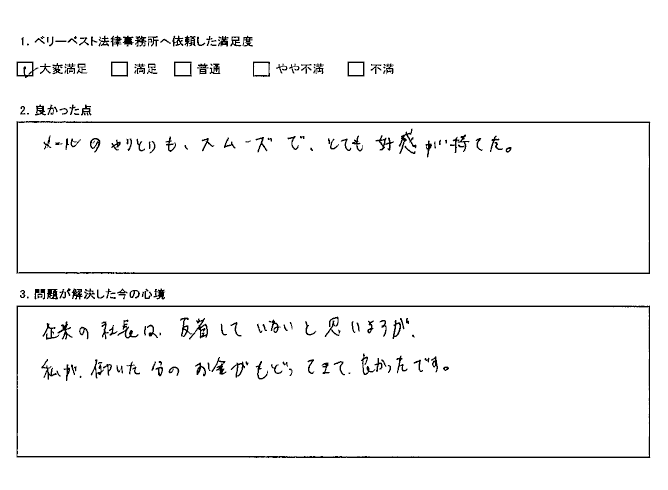 1. ベリーベスト法律事務所へ依頼した満足度
大変満足 満足 普通 やや不満 不満
2. 良かった点
メールのやりとりも、スムーズで、とても好感が持てた。
3. 問題が解決した今の心境
企業の社長は、反省していないと思いますが、
私が、働いた分のお金がもどってきて、良かったです。